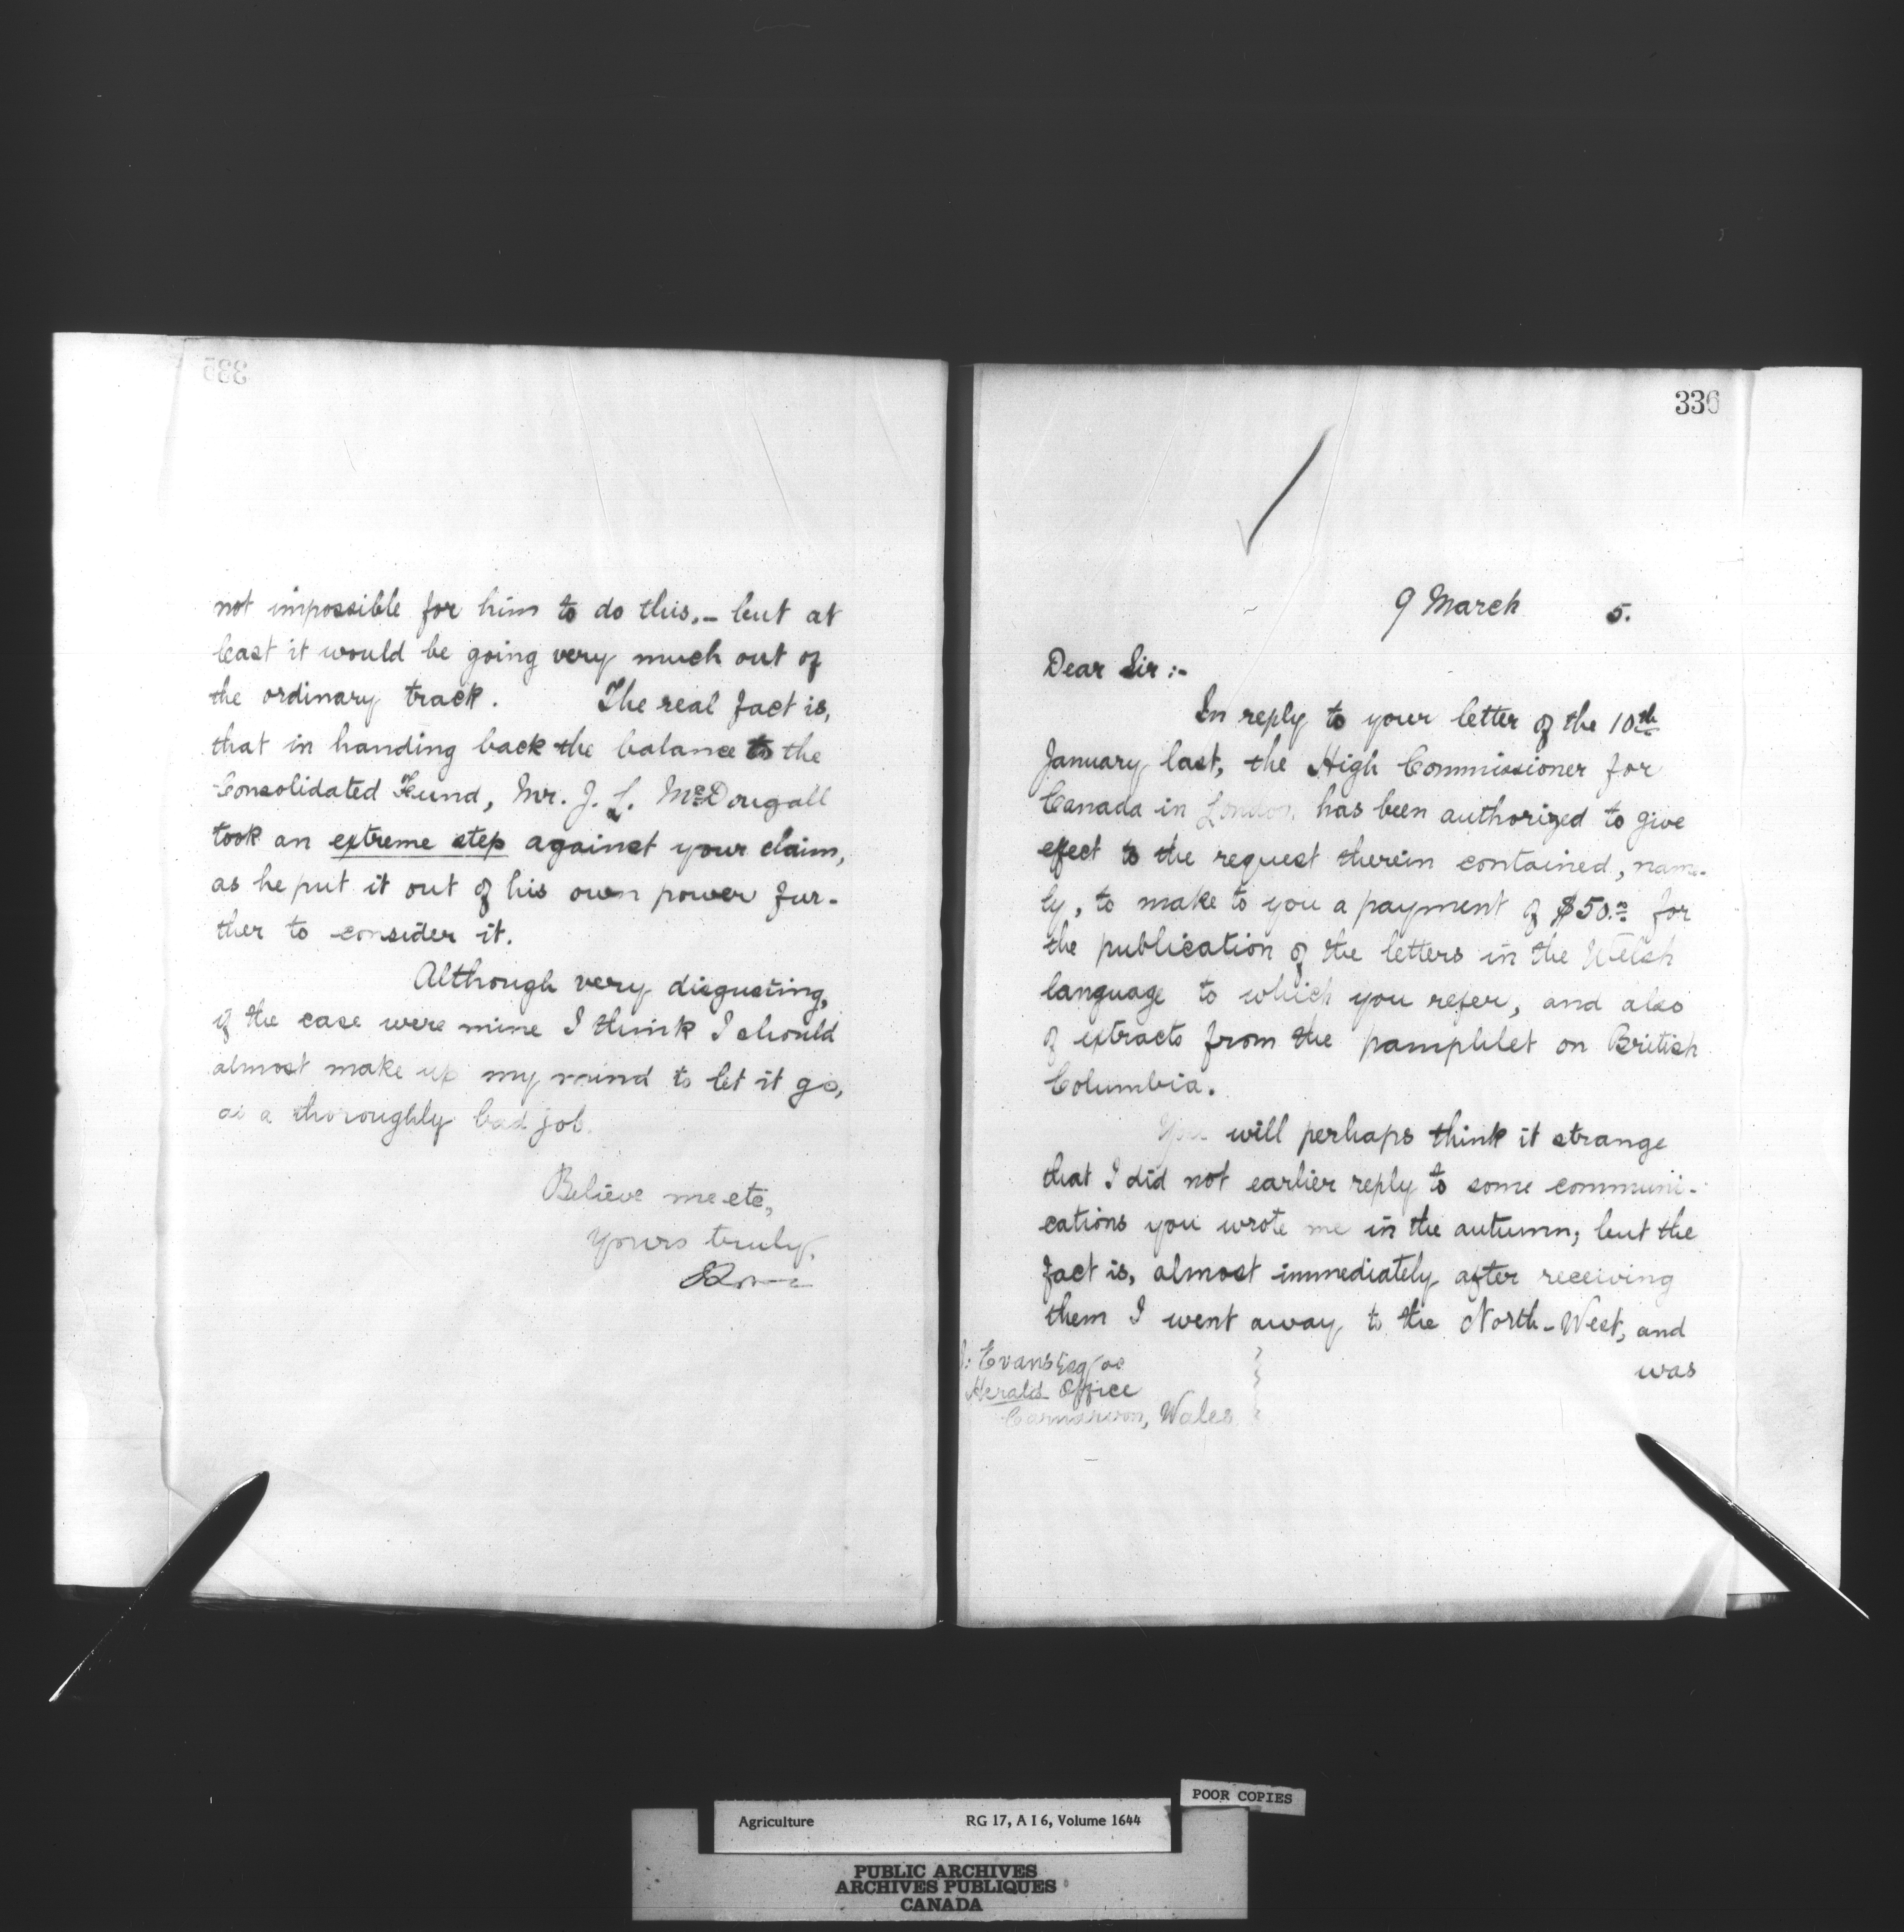 335
not impossible for him to do this.- but at
least it would be going very much out of
the ordinary track. The real fact is,
that in handing back the balance to the
Consolidated Fund, Mr. J. L. McDougall
took an extreme step against your claim,
as he put it out of his own power fur-
ther to consider it.
Although very disgusting,
if the case were mine I think I should
almost make up my mind to let it go,
as a thoroughly bad job.
Believe me etc,
Yours truly,
336
9 March 5.
Dear Sir :-
In reply to your letter of the 10th
January last, the High Commissioner for
Canada in London, has been authorized to give
effect to the request therein contained, name-
ly, to make to you a payment of $50.00 for
the publication of the letters in the Welsh
language to which you refer, and also
of extracts from the pamphlet on British
Columbia.
You will perhaps think it strange
that I did not earlier reply to some communi-
cations you wrote me in the autumn; but the
fact is, almost immediately after receiving
them I went away to the North-West, and
was
Evans Esqre
Herald Office
Carnarvon, Wales
POOR COPIES
Agriculture RG 17, A I 6, Volume 1644
PUBLIC ARCHIVES
ARCHIVES PUBLIQUES
CANADA